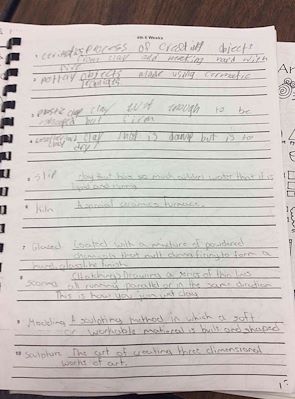 4th 6 Weeks
1 ceramics process of creating objects
from clay and making hard with
fire
2 pottery objects made using ceramic
3 plastic clay clay wet enough to be
but firm
4 clay that is damp but is to
dry
5 Slip clay that has so much added water that it is
liquid and runny.
6 Kiln A special ceramics furnace.
7 Glazed Coated with a mixture of powdered
chemicals that melt during firing to form a
hard, glasslike finish
8 Scoring (Hatching) Drawing a series of thin lines
all running parallel or in the same direction
This is how you join clay
9 Modeling A sculpting method in which a soft
or workable material is built and shaped
10 Sculpture The art of creating three dimensional
works of art.